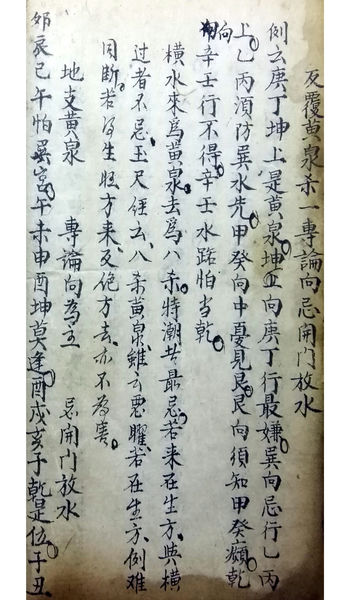 反覆黃泉杀一專論向忌開門放水
例云庚丁坤上是黃泉坤向庚丁行最嫌巽向忌行乙丙
上乙丙須防巽水先甲癸向中憂見艮艮向須知甲癸癲乾
向辛壬行不得辛壬水路怕当乾
橫水來為黃泉去為八杀特潮艹最忌若来在生方與橫
过者不忌玉尺經云八杀黃泉雖云悪曜若在生方例难
同断若得生旺方来反絶方去亦不為害
地支黃泉 專論向為主 忌開門放水
夘辰巳午怕巽宮午未申酉坤莫逢酉戍亥子乾是位子丑